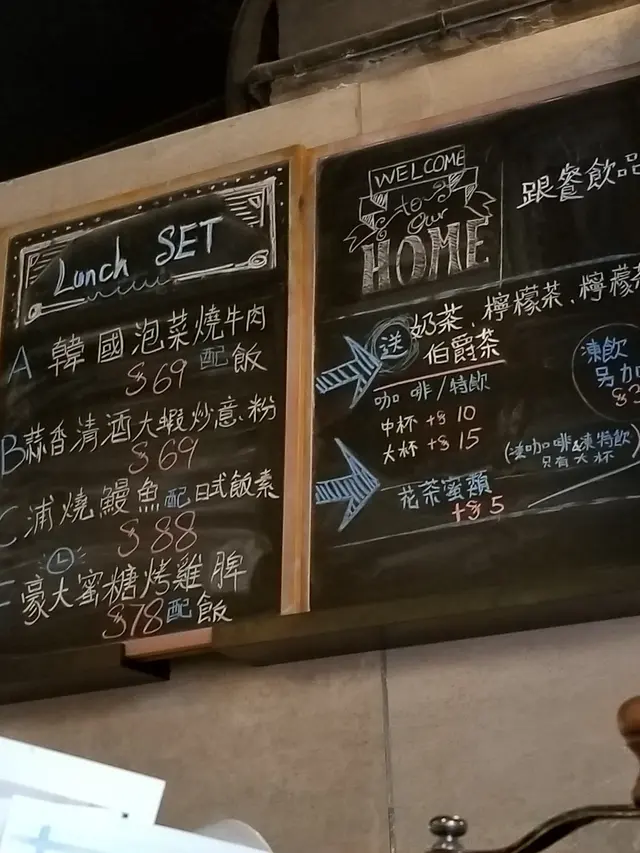 Lunch SET
A 韓國泡菜燒牛肉
$69 配飯
B 蒜香清酒大蝦炒意粉
$69
C 浦燒鰻魚配日式飯素
$88
豪大蜜糖烤雞脾
$78 配飯
WELCOME
to
Our
HOME
跟餐飲品
送 奶茶、檸檬茶、檸檬
伯爵茶
咖啡/特飲
中杯 +$ 10
大杯 +$ 15
凍飲
另加
$3
只有大杯
花茶蜜類
+$5